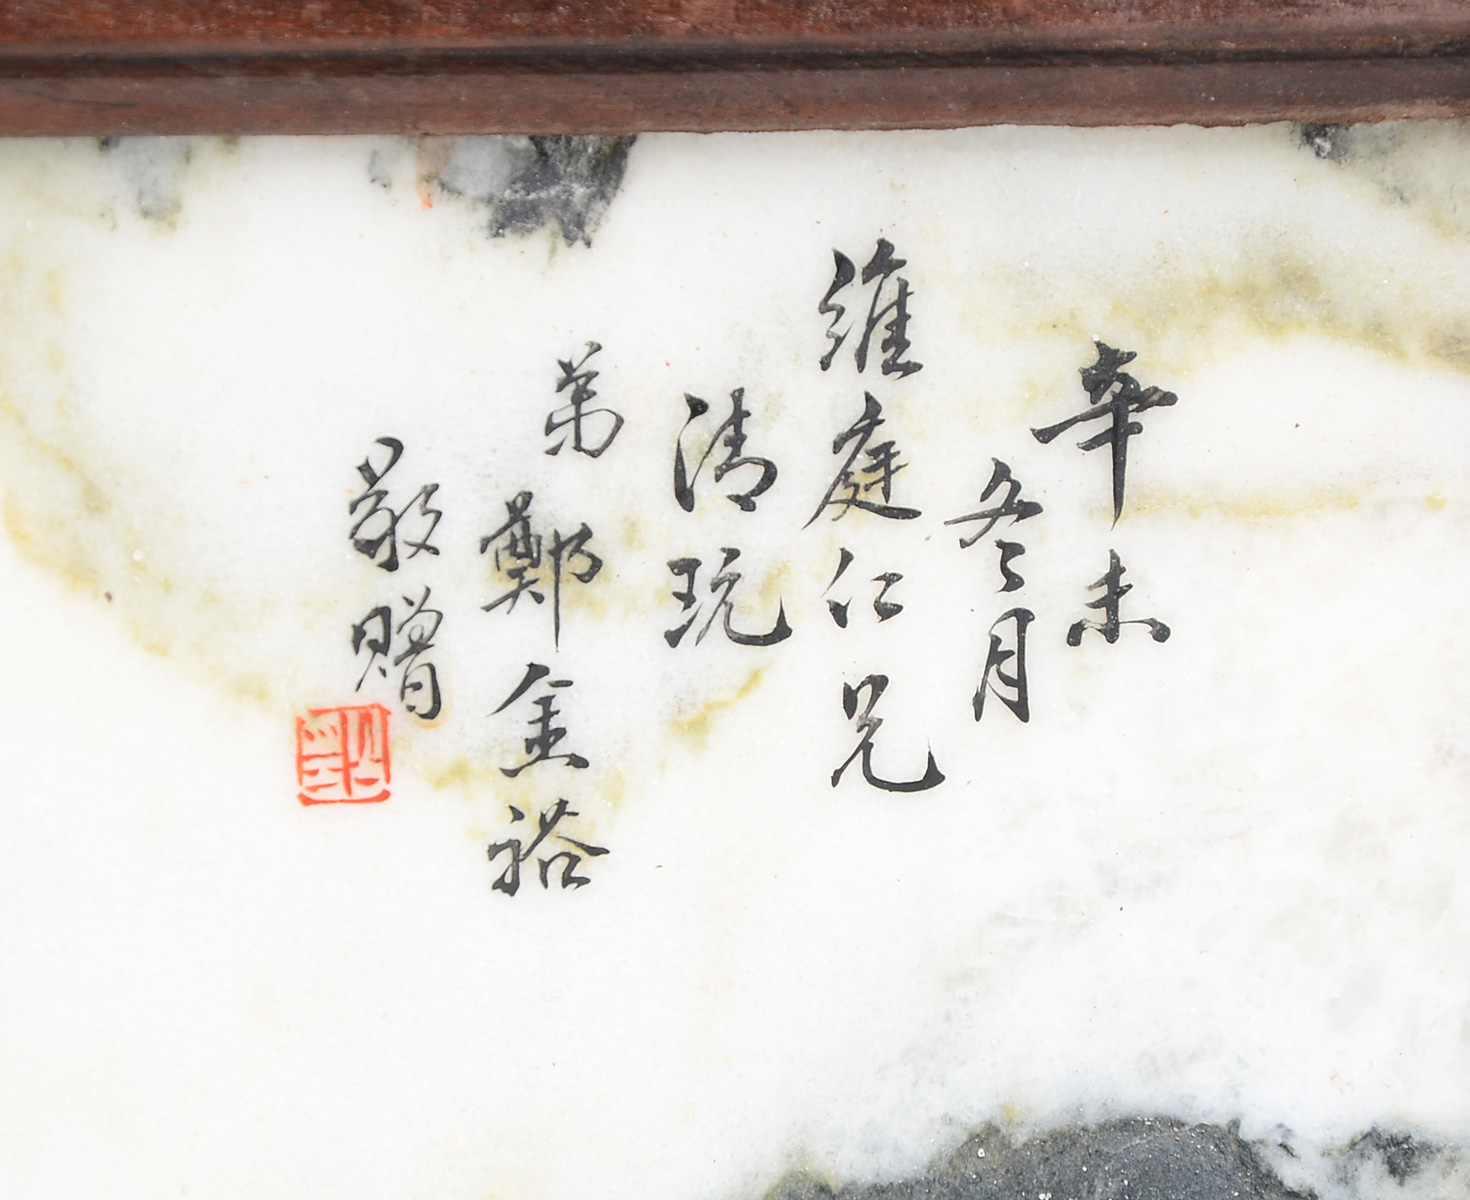 辛未
冬月
維庭仁兄
清玩
弟鄭金裕
敬贈